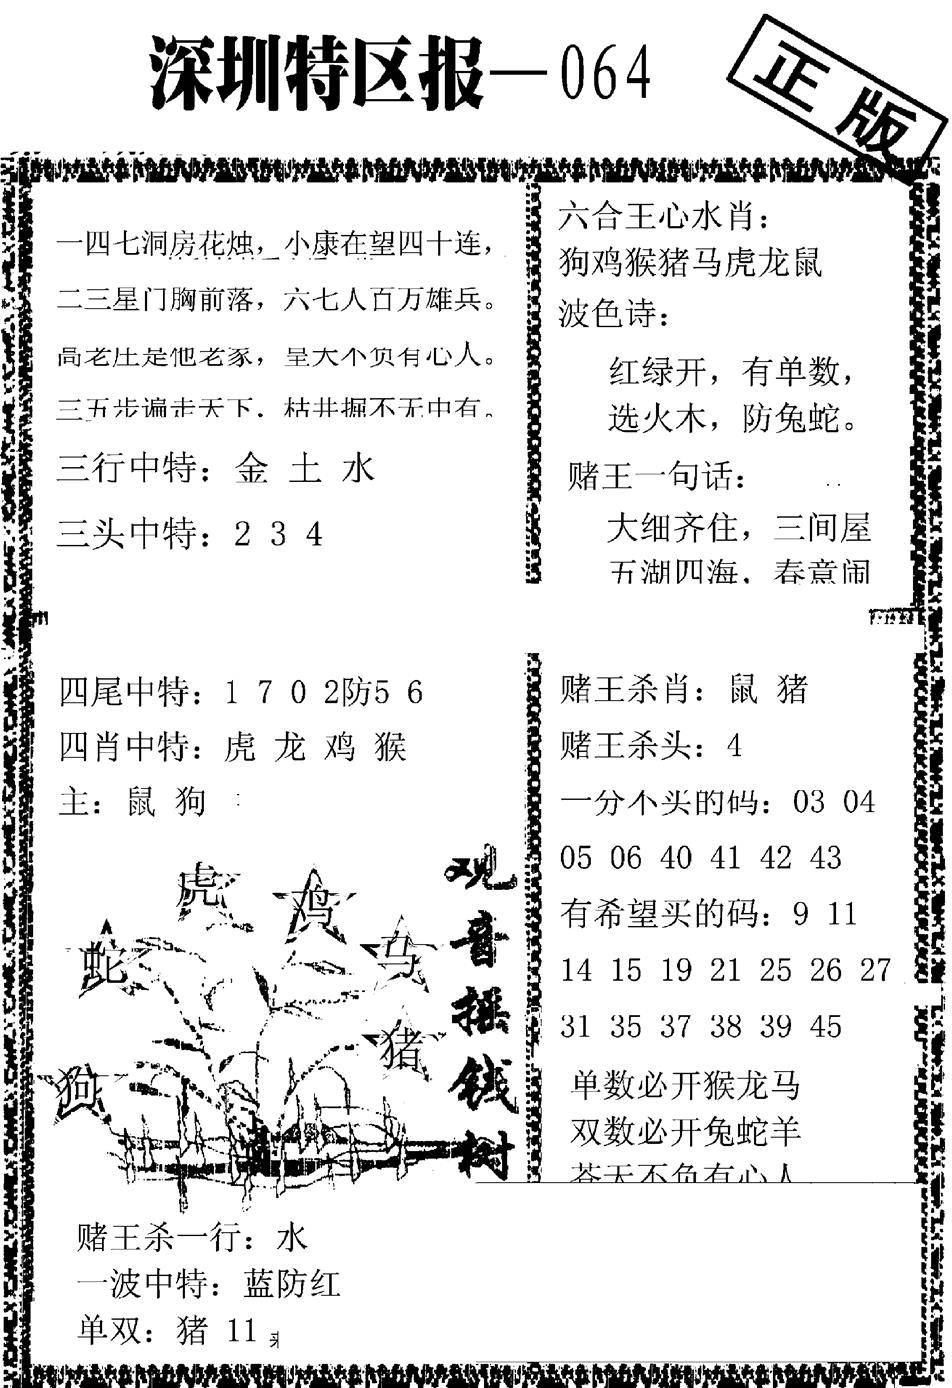 深圳特区报—064
正版
一四七洞房花烛，小康在望四十连，
二三星门胸前落，六七人百万雄兵。
高老庄是他老家，皇天不负有心人。
三五步遍走天下，枯井掘不无中有。
三行中特：金 土 水
三头中特：2 3 4
六合王心水肖：
狗鸡猴猪马虎龙鼠
波色诗：
红绿开，有单数，
选火木，防兔蛇。
赌王一句话：
大细齐住，三间屋
五湖四海，春意闹
四尾中特：1 7 0 2防5 6
四肖中特：虎 龙 鸡 猴
主：鼠 狗
虎
鸡
蛇
马
猪
狗
观音摇钱树
赌王杀肖：鼠 猪
赌王杀头：4
一分不买的码：03 04
05 06 40 41 42 43
有希望买的码：9 11
14 15 19 21 25 26 27
31 35 37 38 39 45
单数必开猴龙马
双数必开兔蛇羊
苍天不负有心人
赌王杀一行：水
一波中特：蓝防红
单双：猪 11